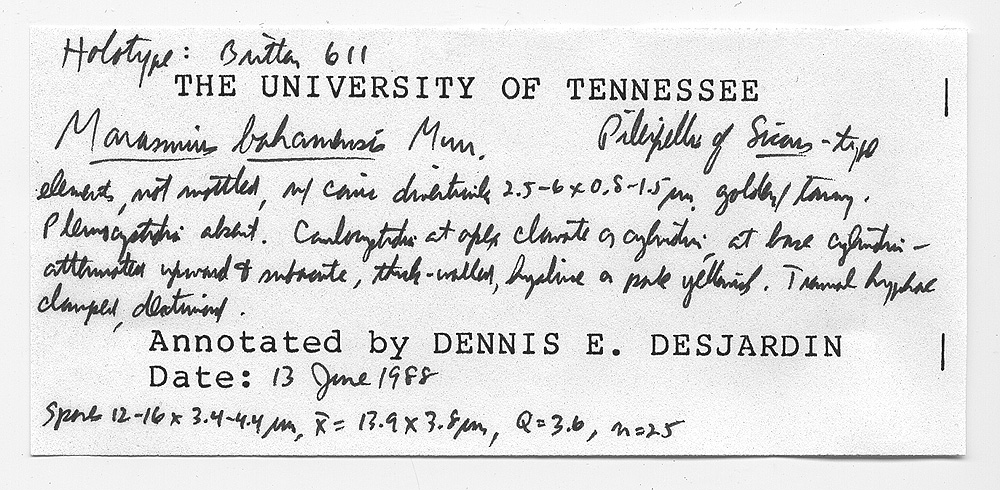 Holotype: Britton 611
THE UNIVERSITY OF TENNESSEE
Marasmius bahamensis Murr. Pileipellis of Siccus-type
elements, not mottled, w/ conic diverticula 2.5-6 x 0.8-1.5 µm, golden/tawny.
Pleurocystidia absent. Caulocystidia at apex clavate or cylindric, at base cylindric-
attenuated upward & subacute, thick-walled, hyaline or pale yellowish. Tramal hyphae
clamped, dextrinoid.
Annotated by DENNIS E. DESJARDIN
Date: 13 June 1988
Spores 12-16 x 3.4-4.4 µm, x̄ = 13.9 x 3.8 µm, Q=3.6, n=25